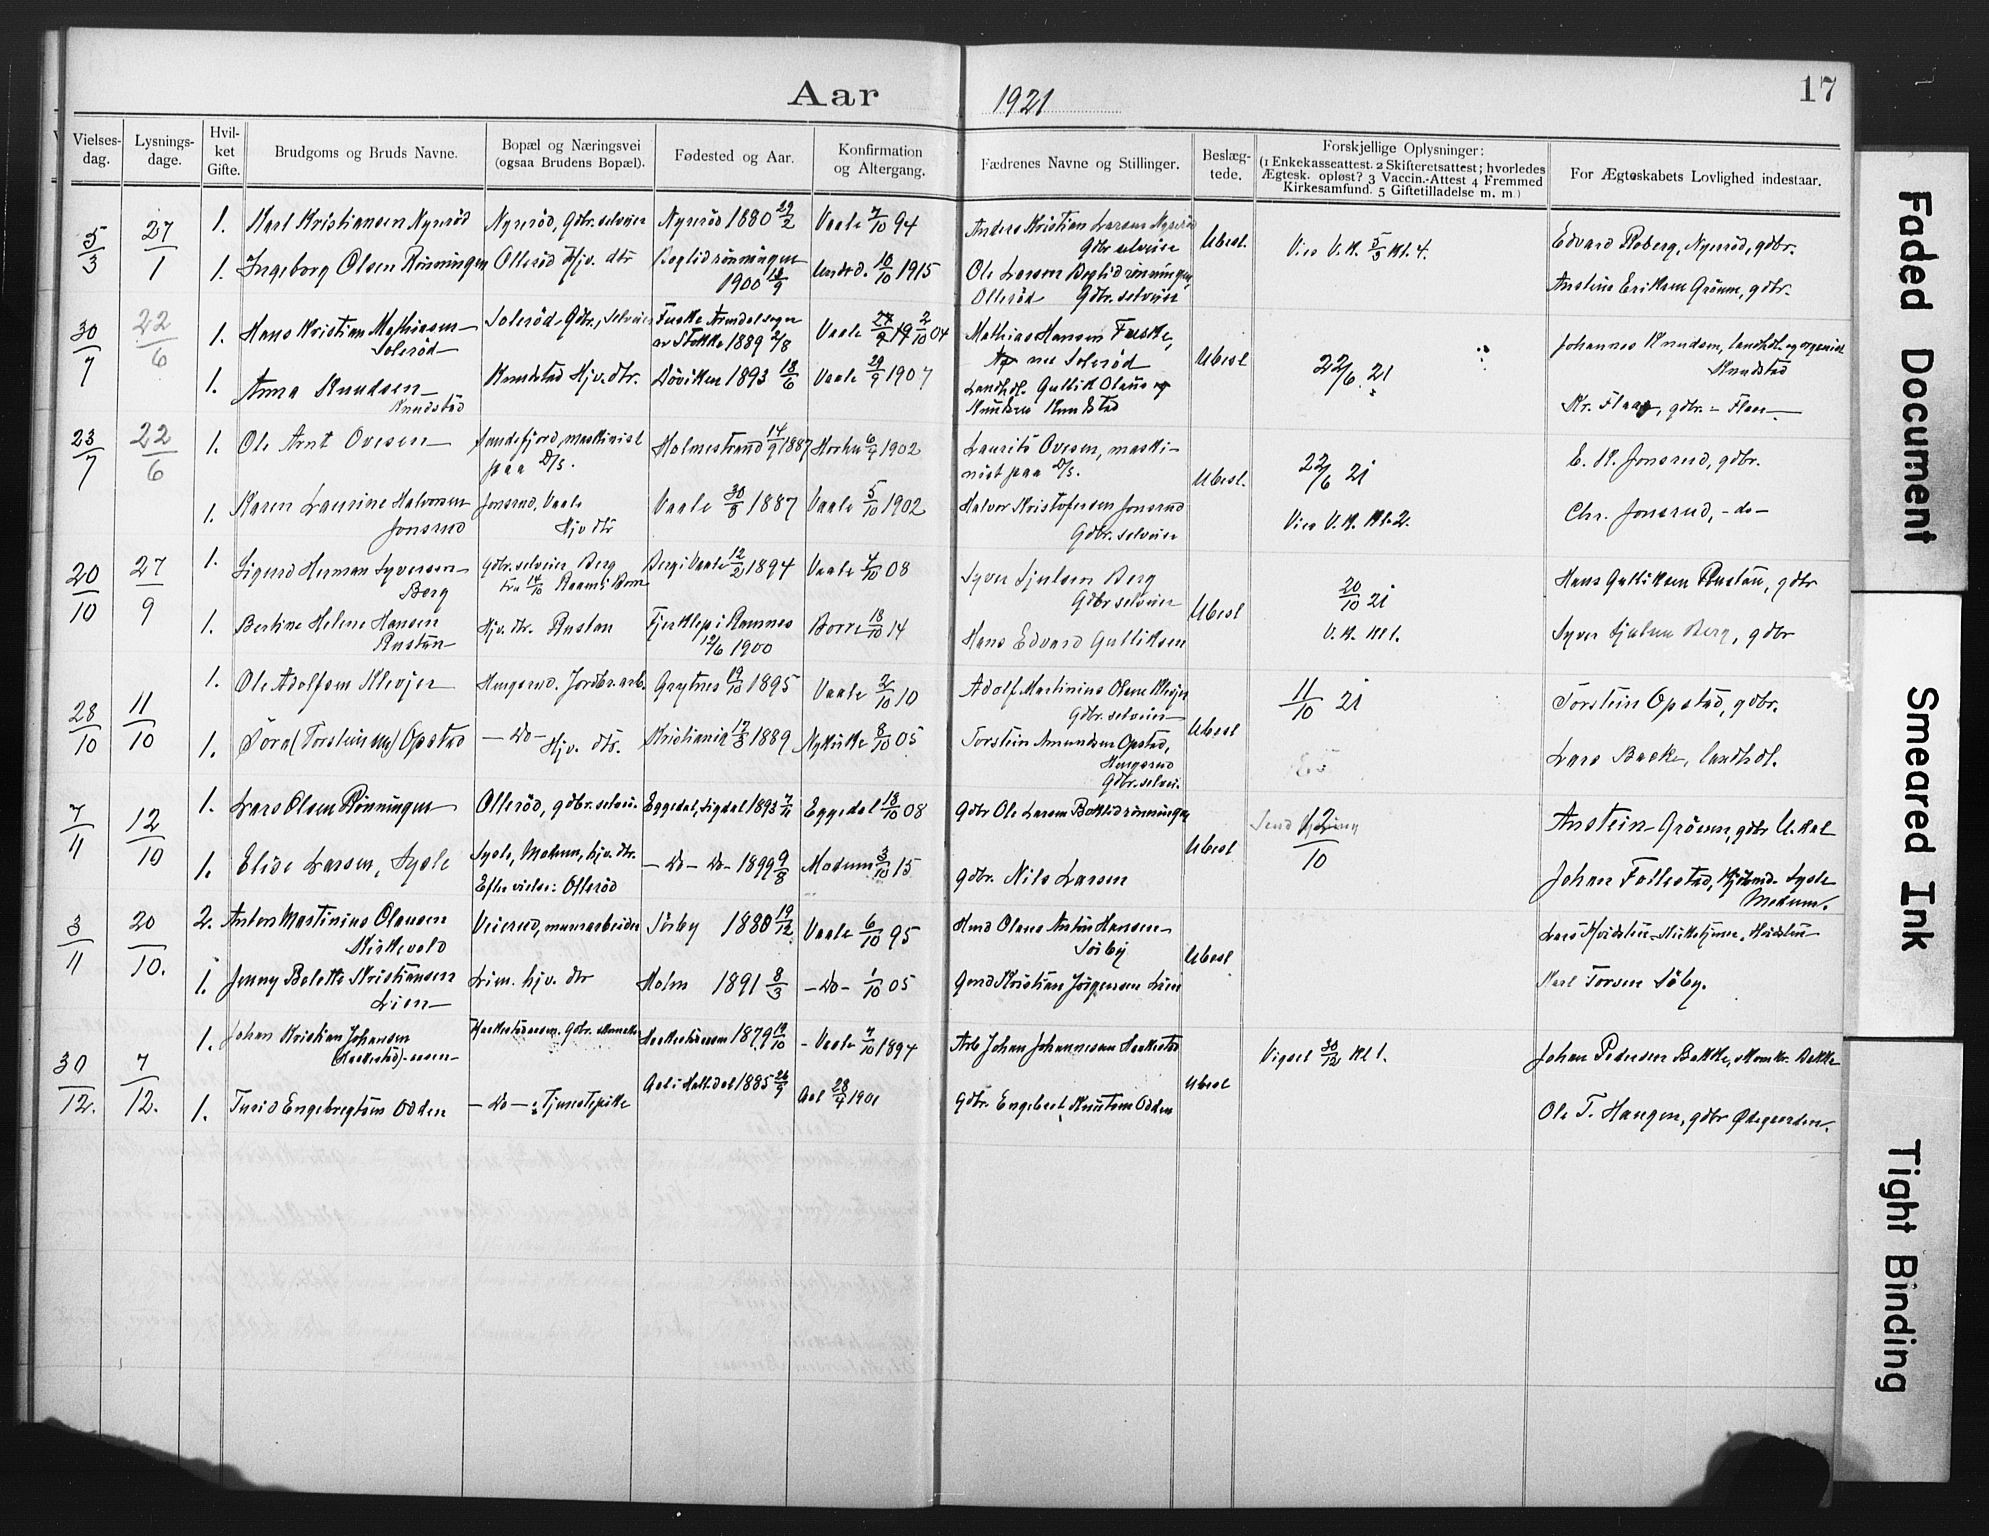 Aar 1921
17
Vielses-dag.
Lysnings-dage.
Hvil-ket Gifte.
Brudgoms og Bruds Navne.
Bopæl og Næringsvei (ogsaa Brudens Bopæl).
Fødested og Aar.
Konfirmation og Altergang.
Fædrenes Navne og Stillinger.
Beslæg-tede.
Forskjellige Oplysninger:
(1 Enkekasseattest. 2 Skifteretsattest; hvorledes
Ægtesk. opløst? 3 Vaccin.-Attest 4 Fremmed
Kirkesamfund. 5 Giftetilladelse m. m)
For Ægteskabets Lovlighed indestaar.
5/3 27/1 1. Karl Kristiansen Nyerød Nyerød, Gdbr. selveier Nyerød 1880 29/2 Vaale 7/10 94 Anders Kristian Larsen Nyerød Gdbr selveier Ubesl. Vies V.K. 5/3 Kl. 4. Edvard Roberg, Nyerød, gdbr.
1. Ingeborg Olsen Rønningen Ollerød Hjv. dtr 1900 18/9 10/10 1915 Ole Larsen
Ollerød Gdbr. selveier Anstein Eriksen Grøsem, gdbr.
30/7 22/6 1. Hans Kristian Mathiesen Solerød Solerød, Gdbr., selveier Stokke 1889 2/8 Vaale 2/10 04 Mathias Hansen Fuske, nu Solerød Ubesl 22/6. 21 Johannes Knudsen, landhdl. og organist Knudstad
1. Anna Knudsen Knudstad Knudstad Hjv. dtr. Døviken 1893 18/6 Vaale 29/9 1907 Landhdl. Gullik Olaus Knutsen Knudstad Kr. Flaa, gdbr. - Flaa
23/7 22/6 1. Ole Arnt Ovesen Sandefjord, maskinist paa D/S. Holmestrand 14/9 1887 Horten 6/4 1902 Laurits Ovesen, maski-
nist paa D/S. Ubesl. 22/6 21 E. K. Jonsrud, gdbr.
1. Karen Laurine Halvorsen Jonsrud Jonsrud, Vaale Hjv dtr Vaale 30/8 1887 Vaale 5/10 1902 Halvor Kristofersen Jonsrud Gdbr. selveier Vies V.K. Kl. 2. Chr. Jonsrud, -do-
20/10 27/9 1. Sigurd Herman Syversen Berg Gdbr. selveier Berg Berg i Vaale 12/2 1894 Vaale 4/10 08 Syver Sjulsen Berg Gdbr selveier Ubesl 20/10 21 Hans Gulliksen Rustan, gdbr
1. Bertine Helene Hansen Rustan Hjv. dtr. Rustan Fjerklep i Ramnes 12/6 1900 Borre 18/10 14 Hans Edvard Gulliksen V.K. Kl 1. Syver Sjulsen Berg, gdbr
28/10 11/10 1. Ole Adolfsen Klevjer Hengsrud. Jordbr. arb. Grytnes 19/10 1895 Vaale 2/10 10 Adolf Martinius Olsen Klevjer Gdbr. selveier Ubesl 11/10 21 Torstein Opstad, gdbr.
1. Tora (Torsteinsen) Opstad -Do- Hjv. dtr. Kristiania 17/3 1889 Nykirke 8/10 05 Torstein Amundsen Opstad, Hengsrud Gdbr. selvei. Lars Bakke, landhdl.
7/11 12/10 1. Lars Olsen Rønningen Ollerød, gdbr. selvei. Eggedal, Sigdal 1893 Eggedal 18/10 08 Gdbr Ole Larsen Ubesl 12/10 Anstein Grøsem, gdbr
1. Elise Larsen, Sysle Sysle, Modum, hjv. dtr. Efter vielse: Ollerød -Do- Do- 1899 9/8 Modum 3/10 15 gdbr. Nils Larsen Johan Follestad, Sysle Modum.
3/11 20/10. 2. Anton Martinius Olausen Kirkevold Veierud, murarbeider Sørby 1880 19/12 Vaale 6/10 95 Hmd Olaus Anton Hansen Sørby Ubesl
1. Jenny Bolette Kristiansen Lien Lien. hjv. dtr Holm 1891 8/3 -Do- 1/10 05 Gmd Kristian Jørgensen Lien Karl Torsen Søby.
30/12. 7/12. 1. Johan Kristian Johansen (Haekestad)-aasen Haekestadaasen. Gdbr. Haekestadaasen 1879 19/10 - Vaale 7/10 1894 Arb Johan Johannesen Haekestad Ubesl Vigsel 30/12 Kl 1. Johan Pedersen Bakke, Bakke
1. Turid Engebretsen Odden -Do-: Tjenestepike Aal i Halldal 1885 26/9 Aal 28/9 1901 gdbr. Engebret Knutsen Odden Ole T. Haugen, gdbr Ødegaarden.
Faded Document
Smeared Ink
Tight Binding